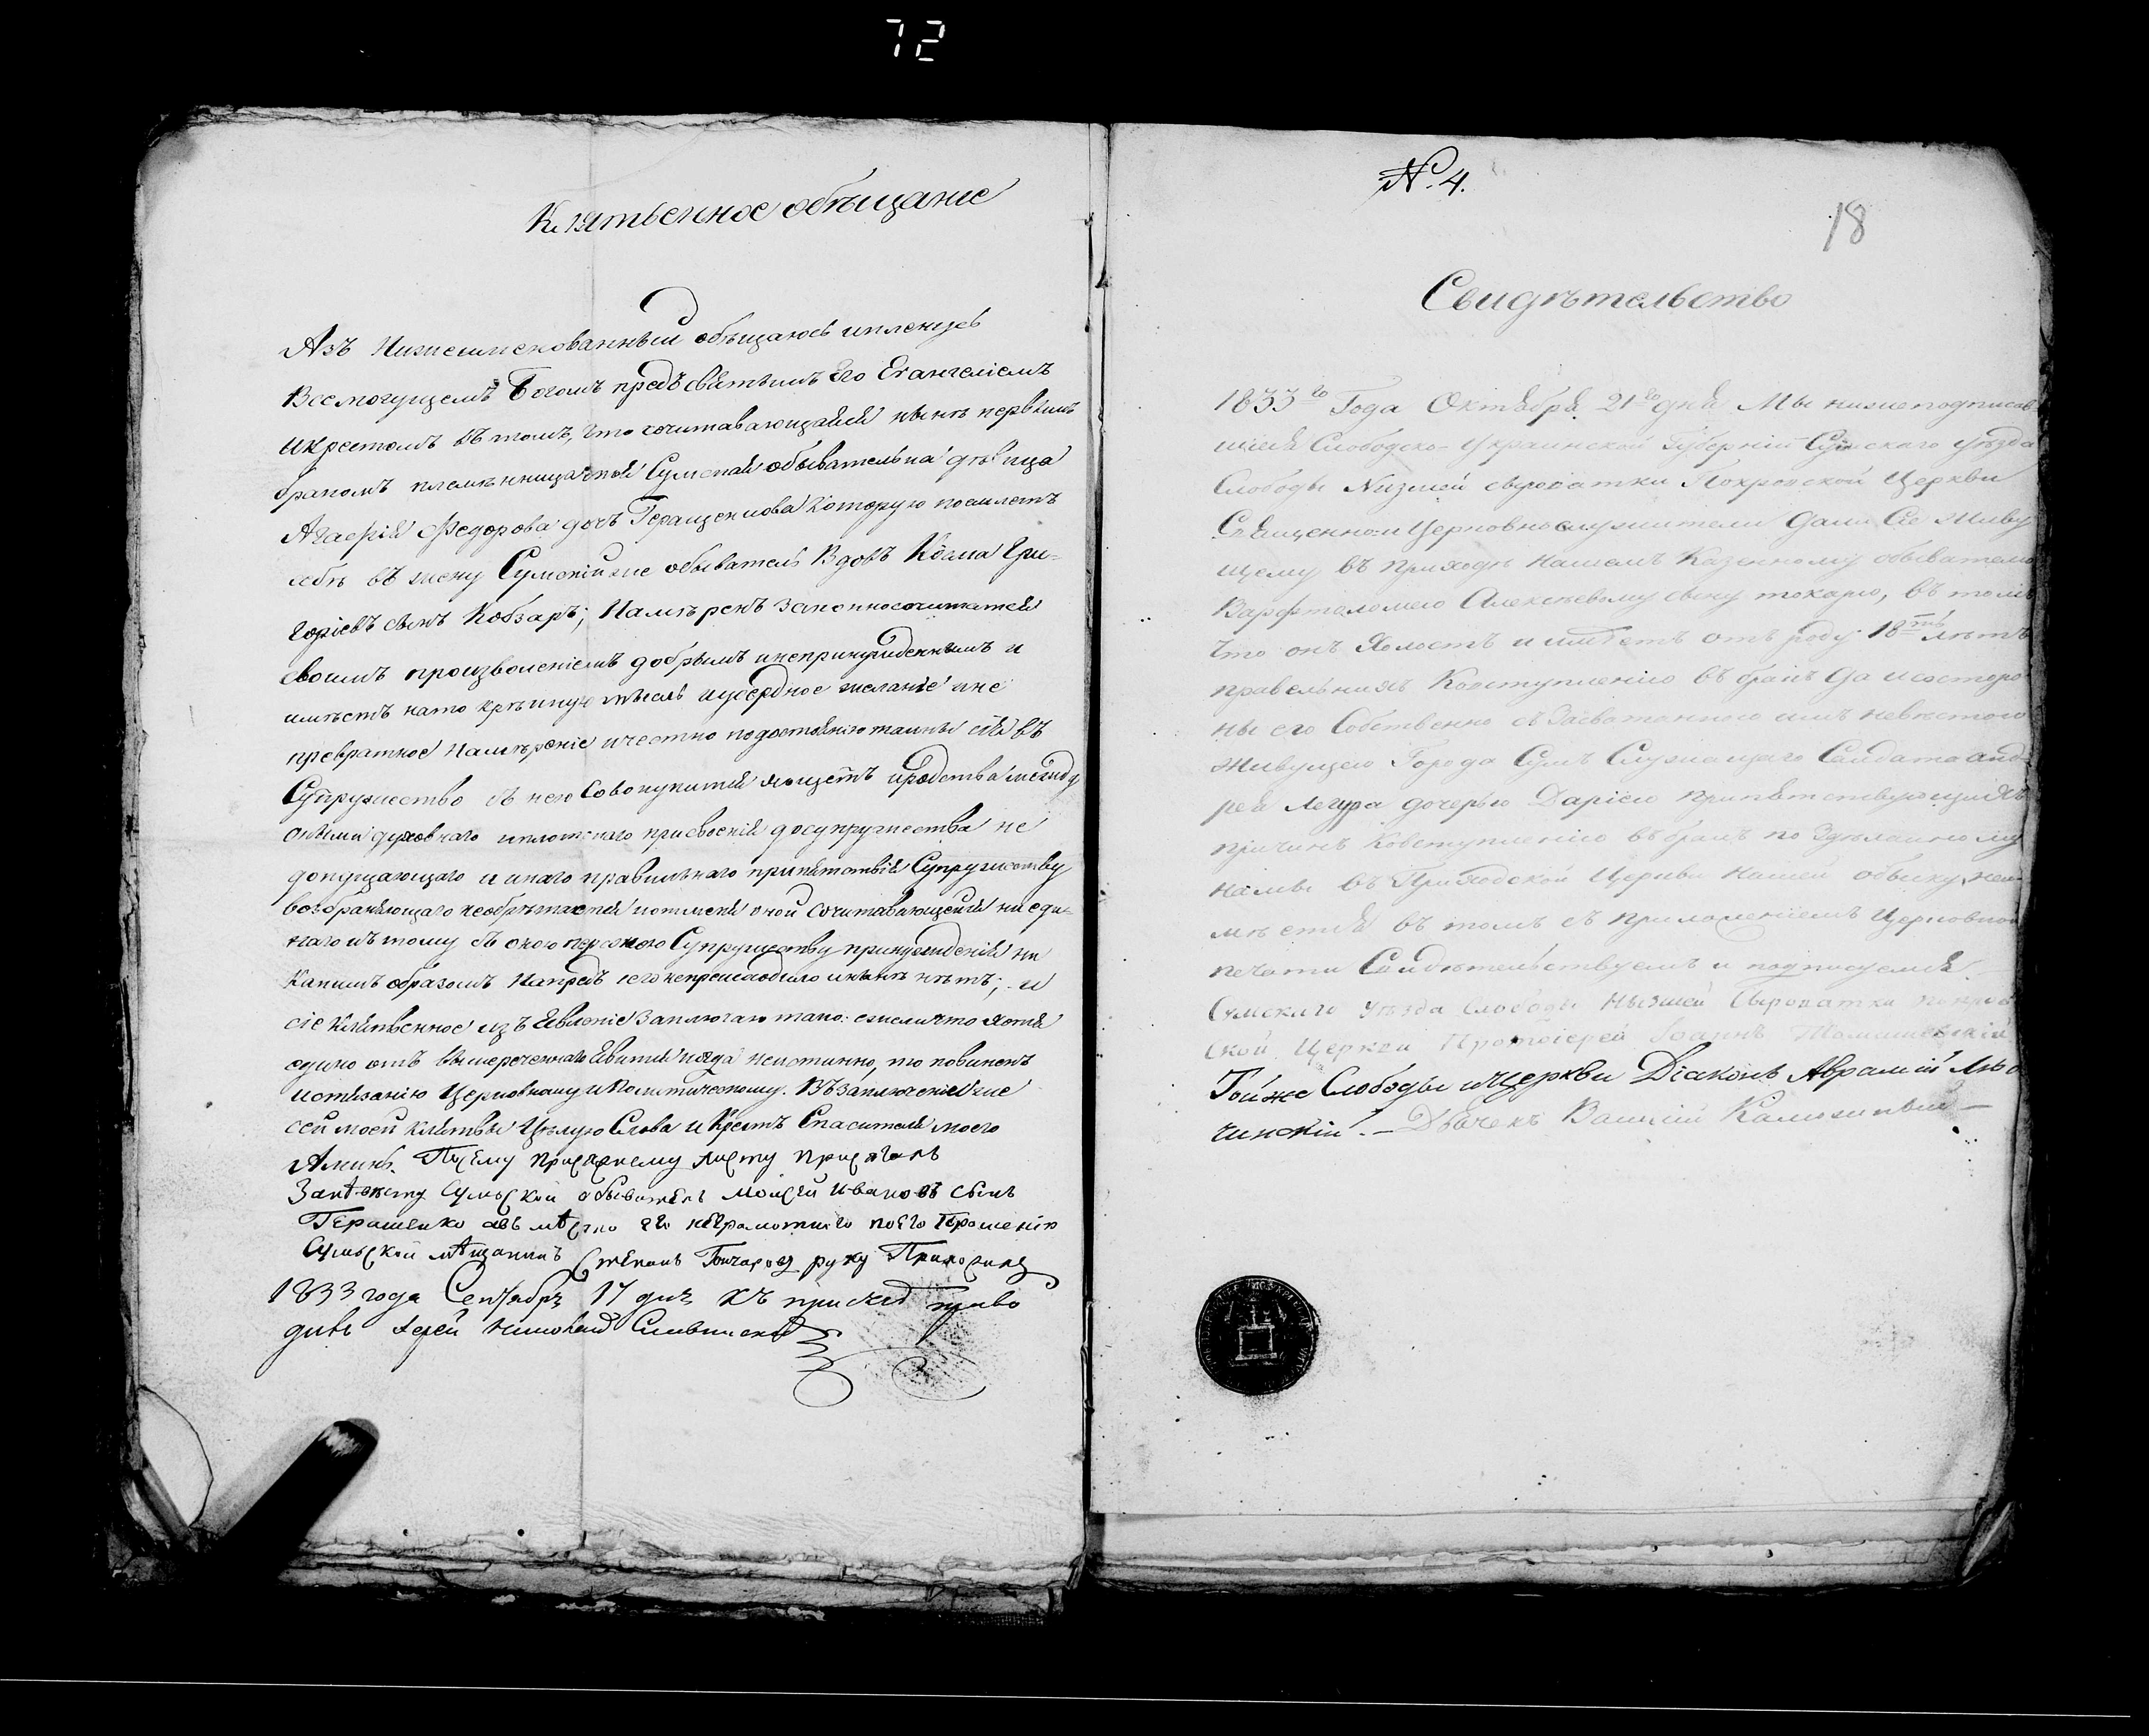 72
Клятвенное обѣщаніе
Азъ Нижеименованный обѣщаюсь и кленусь
Всемогущемъ Богомъ предъ святымъ Его Евангеліемъ
и крестомъ въ томъ, что сочитавающаяся нынѣ первымъ
бракомъ племѣнница моя Сумская обывателька дѣвица
Агафія Федорова дочь Геращенкова Которую поемлетъ
себѣ въ жену Сумскій же обыватель Вдовъ Козма Гри-
горіевъ сынъ Кобзаръ; Намѣренъ законно сочитатся
своимъ произволеніемъ добрымъ и непринужденнымъ и
имѣетъ на то крѣпкую мысль и усердное желаніе и не
превратное намѣреніе и честно по достоянію тайны сія въ
Супружество съ нею Совокупится хощетъ и родства между
оными духовнаго и плотскаго присвоенія до супружества не
допущающаго и инаго правильнаго припятствія Супружеству
возбраняющаго необрѣтается и отменя оной сочитавающейся ни еди-
наго къ тому съ оною персоною Супружеству принужденія ни
Какимъ образомъ Напредъ сего непроисходило и нынѣ нѣтъ; и
сіе клятвенное изъ Явленіе Заключаю тако: ежели что хотя
едино отъ вышереченнаго Явится когда неистинно, то повиненъ
истязанію Церковному и Политическому. Въ Заключеніе же
сей моей клятвы Цѣлую Слова и Крестъ Спасителя моего
Аминь. По сему присяжному листу присягалъ
Сумской обыватель Мойсей Ивановъ сынъ
Геращенко а въ мѣсто его неграмотнаго по его прошенію
Сумской мѣщанинъ Степанъ Гончаровъ руку Приложилъ
1833 года Сентября 17 дня къ присягѣ приво
дилъ Іерей
N. 4.
18
Свидѣтельство
1833го Года Октября 21го дня Мы нижеподписав-
шіеся Слободско-Украинской Губерніи Сумскаго уѣзда
Слободы Низшей сыроватки Покровской Церкви
Священно и Церковнослужители Дали Сіе Живу
щему въ Приходѣ Нашемъ Казенному обывателю
Варфтоломею Алексѣевому сыну токарю, въ томъ
Что онъ Холостъ и имѣетъ отъ роду 18ть лѣтъ
правельнихъ Ковступленію въ бракъ Да и состоро
ны его Собственно съ Засватанною имъ невѣстою
Живущею Города Сумъ Служащаго Салдата Анд
рея Легура дочерью Даріею припятствующихъ
причинъ Ковступленію въ бракъ по Здѣланному
нами въ Приходской Церкви Нашей обыску, неи
мѣется въ томъ съ приложеніемъ Церковной
печати Свидѣтельствуемъ и подписуемся.
Сумскаго уѣзда Слободы Нызшей Сыроватки покров
ской Церкви Протоіерей Іоаннъ
Тойже Слободы и Церкви Діаконъ Аврамій Лю
чинскій. – Дьячекъ Василій